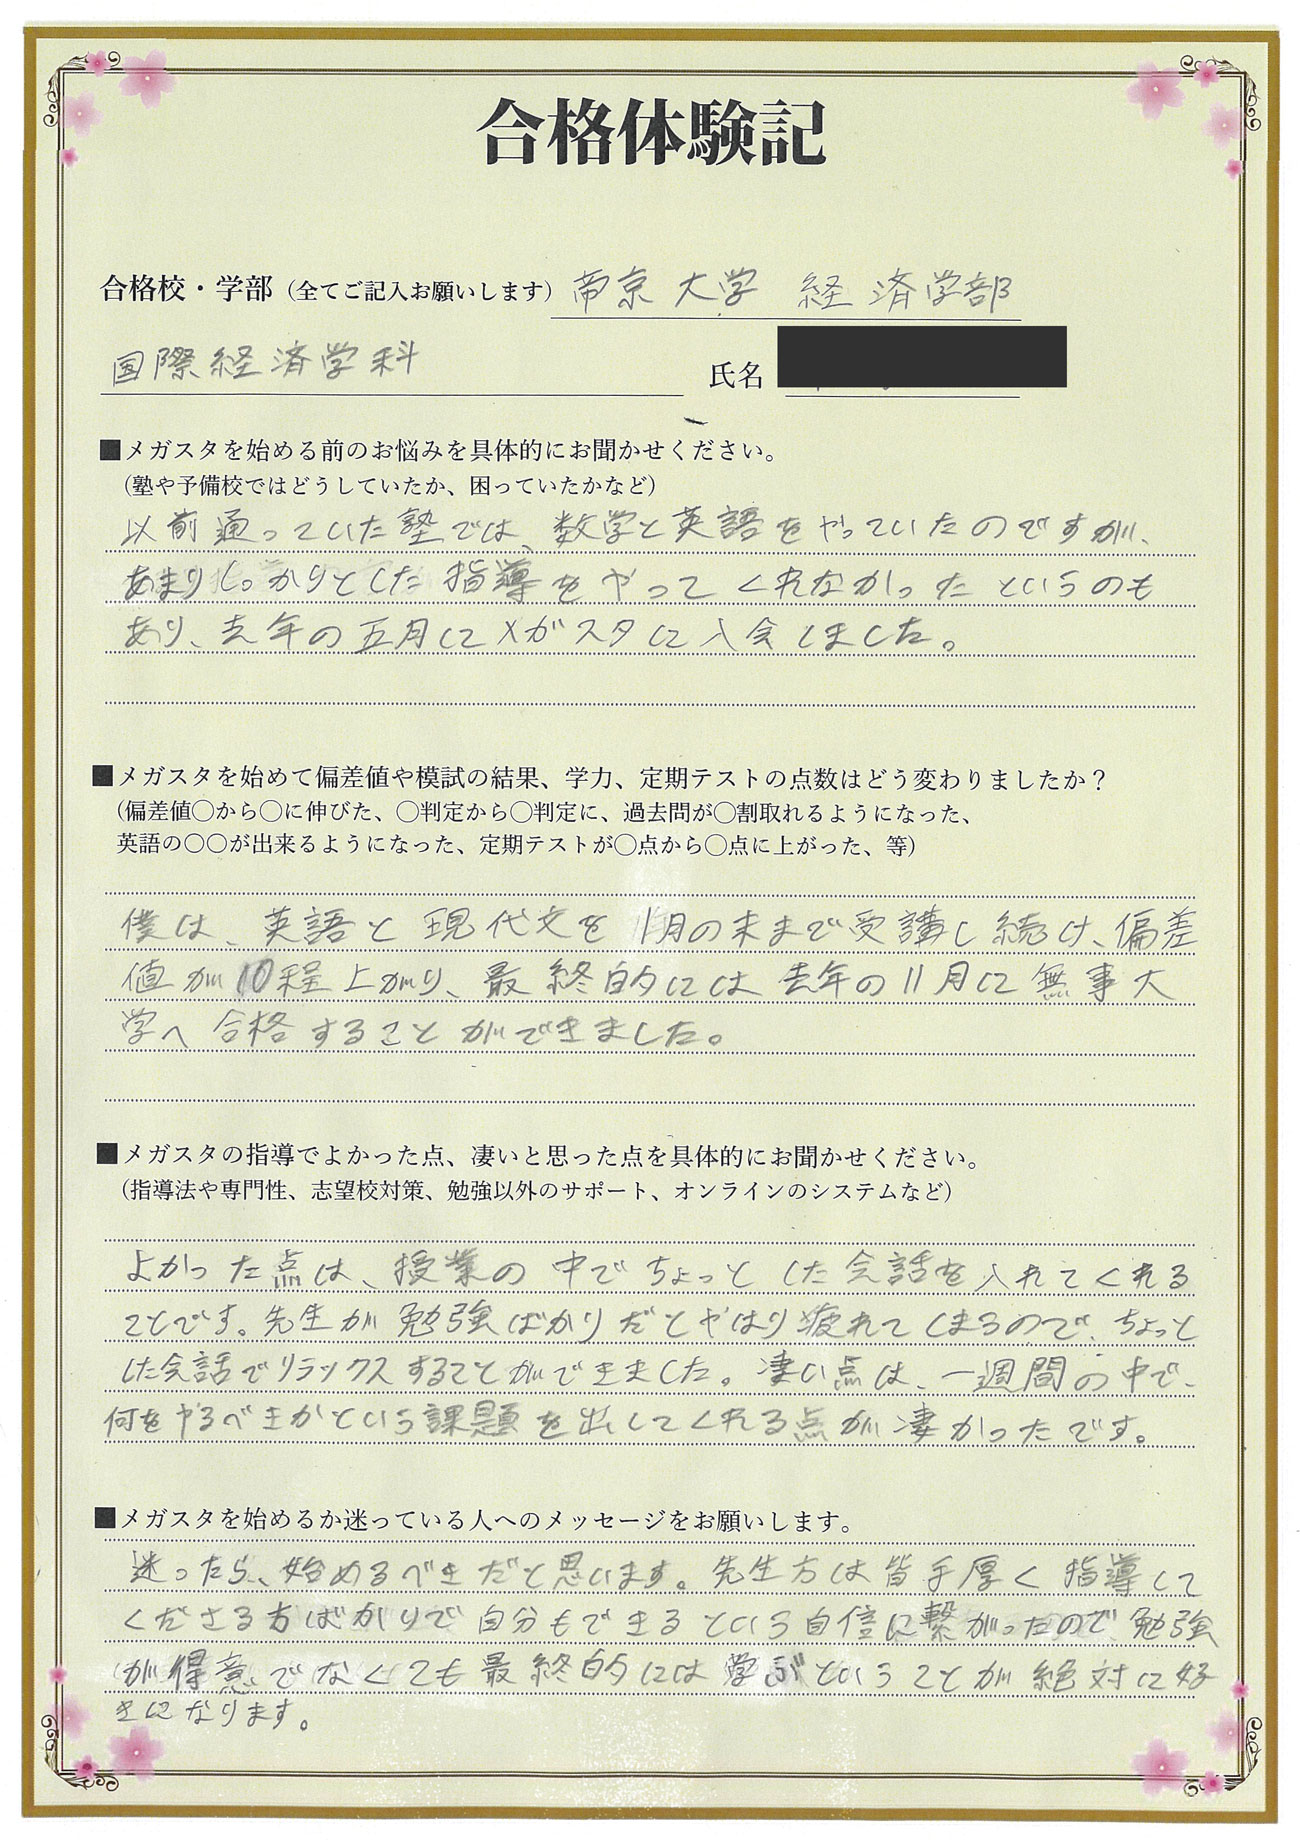 合格体験記
合格校・学部（全てご記入お願いします）帝京大学 経済学部
国際経済学科 氏名
■メガスタを始める前のお悩みを具体的にお聞かせください。
（塾や予備校ではどうしていたか、困っていたかなど）
以前通っていた塾では、数学と英語をやっていたのですが、
あまりしっかりとした指導をやってくれなかったというのも
あり、去年の五月にメガスタに入会しました。
■メガスタを始めて偏差値や模試の結果、学力、定期テストの点数はどう変わりましたか？
（偏差値〇から〇に伸びた、〇判定から〇判定に、過去問が〇割取れるようになった、
英語の〇〇が出来るようになった、定期テストが〇点から〇点に上がった、等）
僕は、英語と現代文を11月の末まで受講し続け、偏差
値が10程上がり、最終的には去年の11月に無事大
学へ合格することができました。
■メガスタの指導でよかった点、凄いと思った点を具体的にお聞かせください。
（指導法や専門性、志望校対策、勉強以外のサポート、オンラインのシステムなど）
よかった点は、授業の中でちょっとした会話を入れてくれる
ことです。先生が勉強ばかりだとやはり疲れてしまうので、ちょっと
した会話でリラックスすることができました。凄い点は、一週間の中で、
何をやるべきかという課題を出してくれる点が凄かったです。
■メガスタを始めるか迷っている人へのメッセージをお願いします。
迷ったら、始めるべきだと思います。先生方は皆手厚く指導して
くださる方ばかりで自分もできるという自信に繋がったので、勉強
が得意でなくても最終的には学ぶということが絶対に好
きになります。